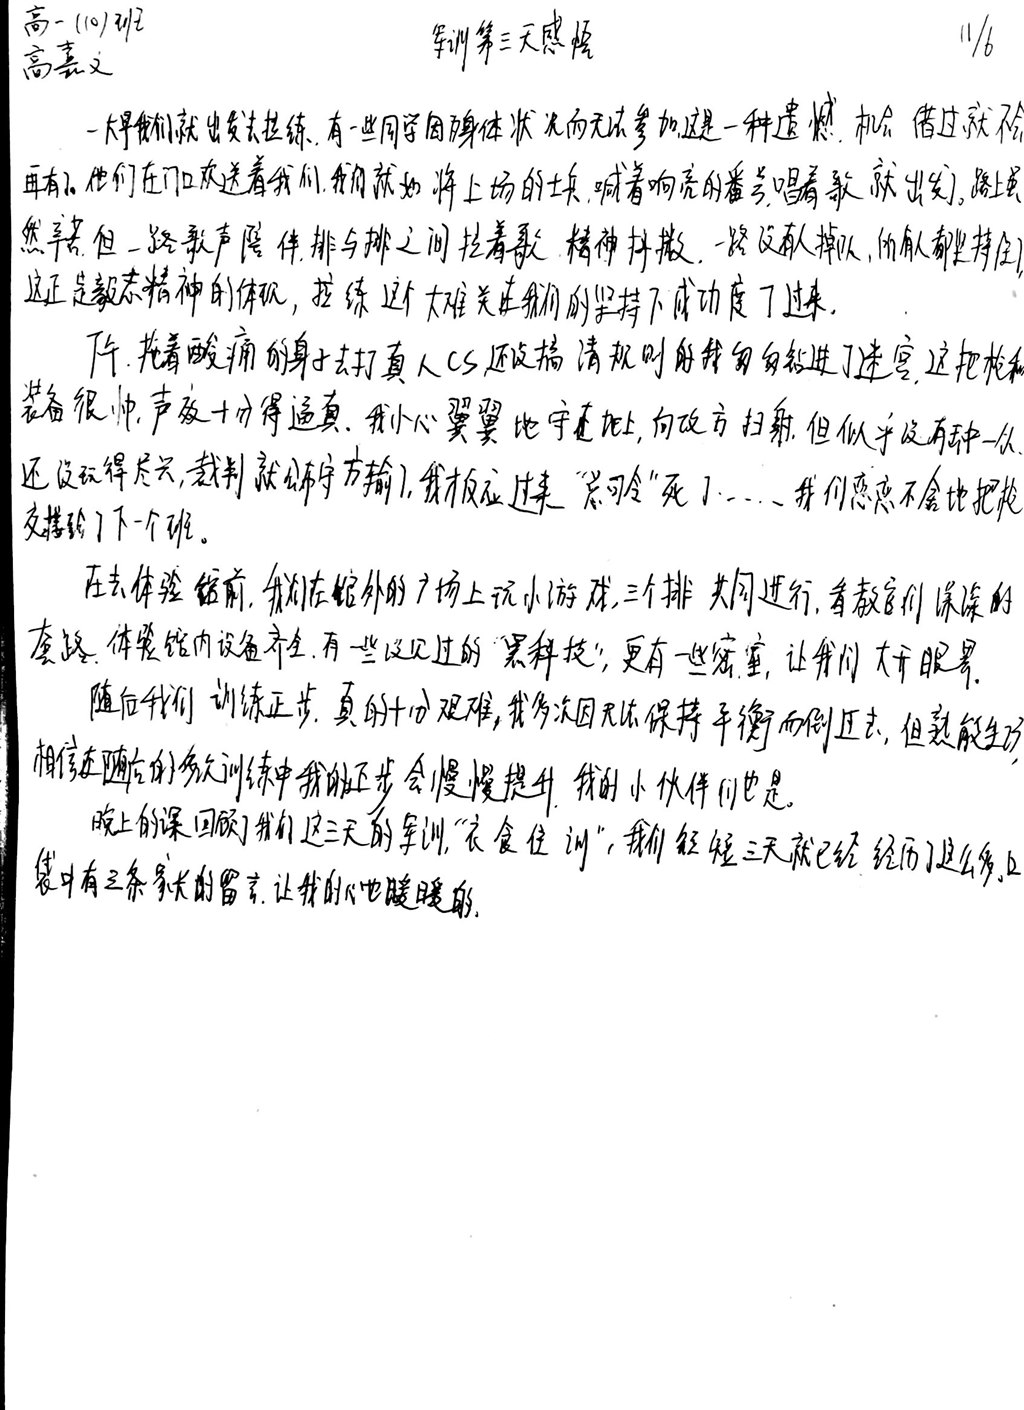 高一(10)班
高嘉文
军训第三天感悟
11/6
一大早我们就出发去拉练.有一些同学因为身体状况而无法参加.这是一种遗憾.机会借过就不会
再有了.他们在门口欢送着我们.我们就如将上场的士兵.喊着响亮的番号.唱着歌就出发了。路上虽
然辛苦.但一路歌声陪伴.排与排之间拉着歌.精神抖擞.一路没有人掉队,所有人都坚持住了,
这正是毅志精神的体现,拉练这个大难关在我们的坚持下成功度了过来.
下午.拖着酸痛的身子去打真人CS.还没搞清规则的我匆匆钻进了迷宫.这把枪和
装备很帅.声效十分得逼真.我小心翼翼地守在地上,向攻方扫射.但似乎没有击中一人.
还没玩得尽兴,裁判就公布守方输了.我才反应过来“总司令”死了……我们恋恋不舍地把枪
交接给了下一个班。
在去体验馆前.我们在馆外的广场上玩小游戏,三个排共同进行,看教官们深深的
套路.体验馆内设备齐全.有一些没见过的“黑科技”,更有一些密室,让我们大开眼界.
随后我们训练正步.真的十分艰难,我多次因无法保持平衡而倒过去,但熟能生巧,
相信在随后的多次训练中我的正步会慢慢提升.我的小伙伴们也是。
晚上的课回顾了我们这三天的军训,“衣食住训”,我们短短三天就已经经历了这么多.口
袋中有三条家长的留言.让我的心也暖暖的.